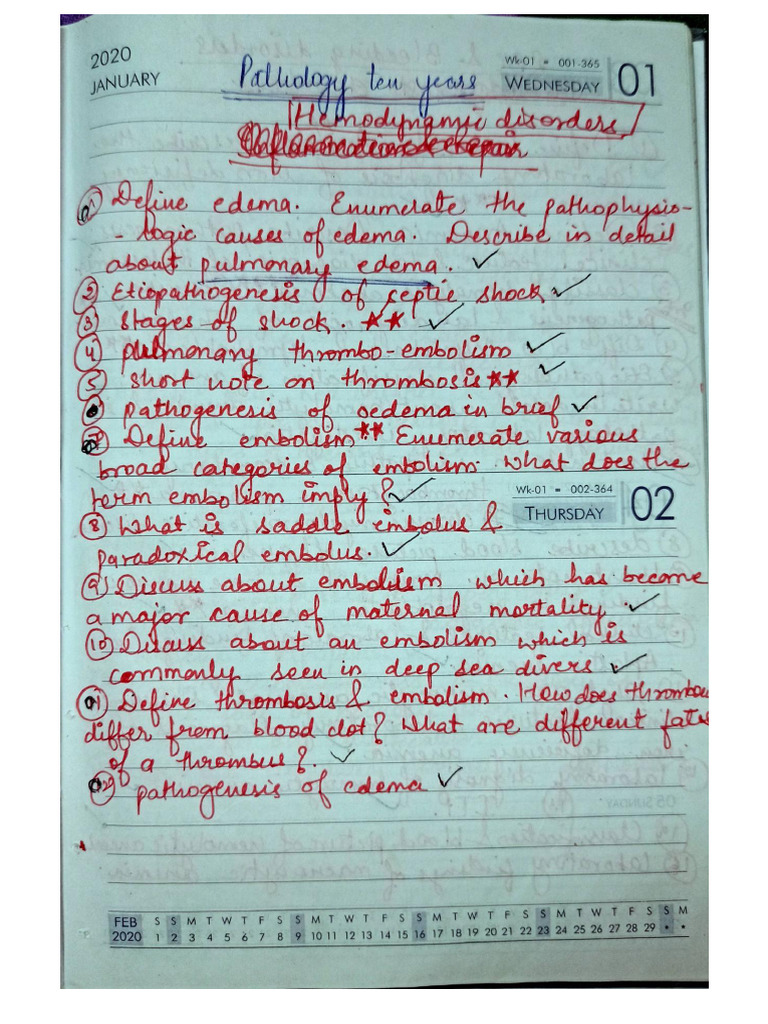 2020
JANUARY
Wk-01 = 001-365
WEDNESDAY 01
Pathology ten years
Hemodynamic disorders
Q1 Define edema. Enumerate the pathophysio-
-logic causes of edema. Describe in detail
about pulmonary edema. ✓
② Etiopathogenesis of septic shock ✓
③ stages of shock. ★★ ✓
④ pulmonary thrombo-embolism ✓
⑤ short note on thrombosis ★★ ✓
pathogenesis of oedema in brief ✓
Define embolism ★★ Enumerate various
broad categories of embolism. What does the
term embolism imply? ✓
Wk-01 = 002-364
THURSDAY 02
⑧ What is saddle embolus &
paradoxical embolus. ✓
⑨ Discuss about embolism which has become
a major cause of maternal mortality ✓
⑩ Discuss about an embolism which is
commonly seen in deep sea divers ✓
Define thrombosis & embolism. How does thrombus
differ from blood clot? What are different fates
of a thrombus? ✓
pathogenesis of edema ✓
FEB S S M T W T F S S M T W T F S S M T W T F S S M T W T F S S M
2020 1 2 3 4 5 6 7 8 9 10 11 12 13 14 15 16 17 18 19 20 21 22 23 24 25 26 27 28 29 * *